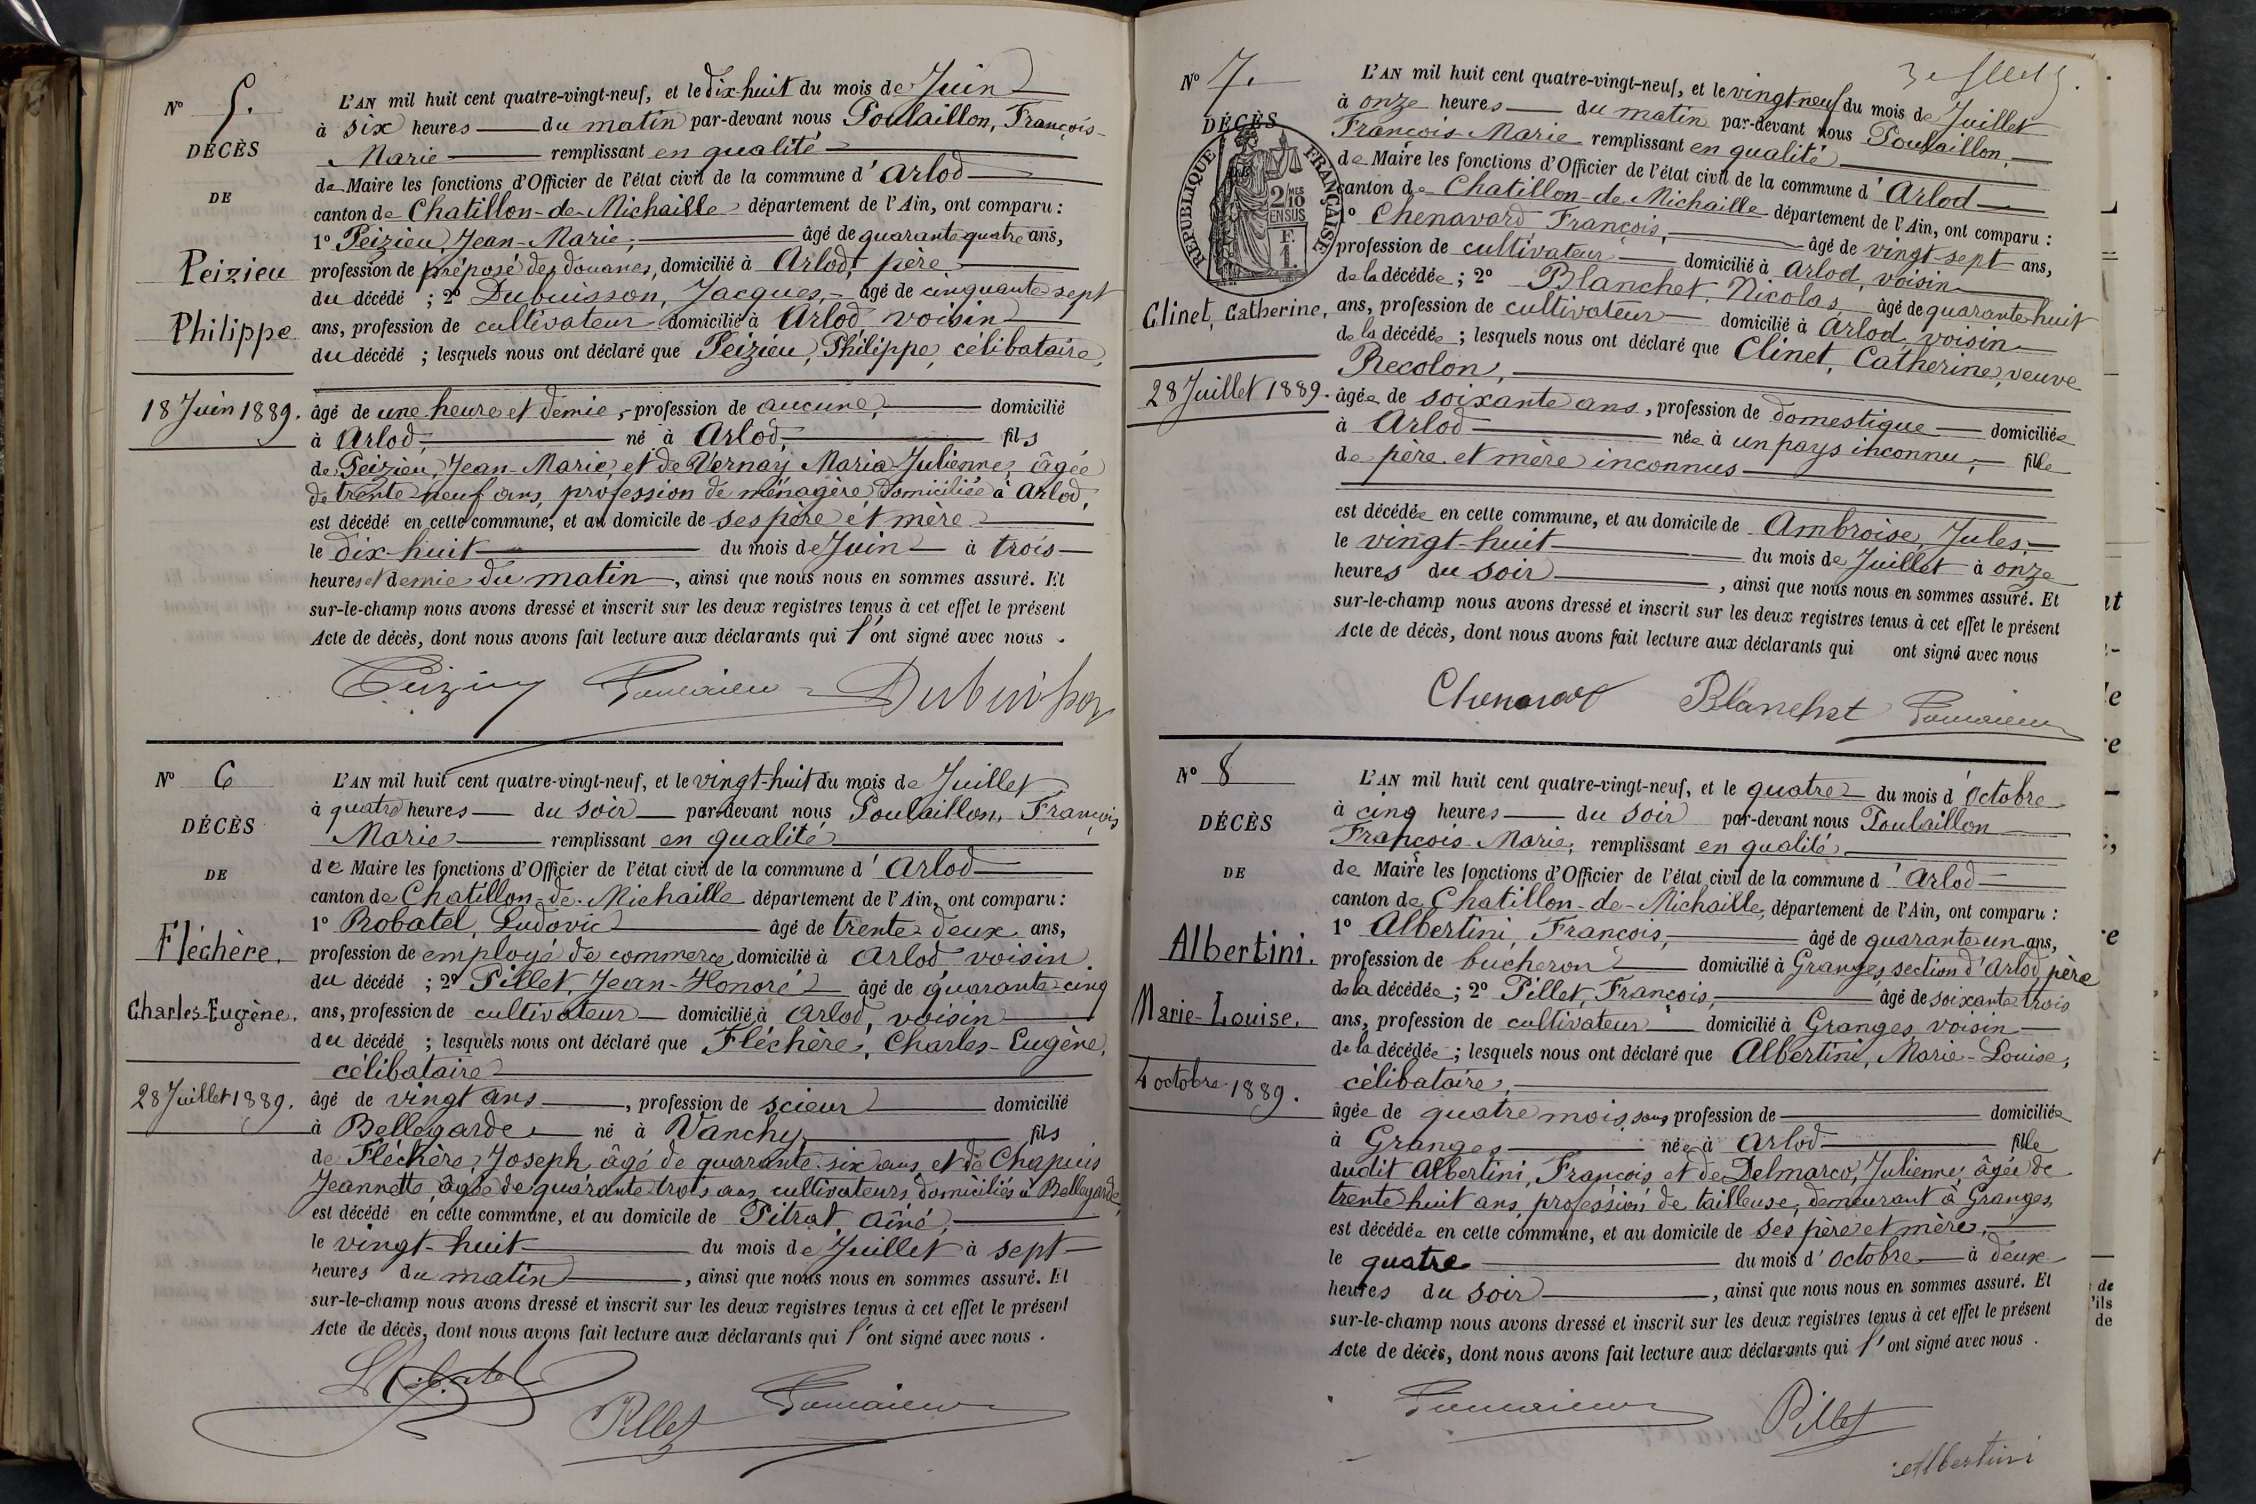 N° 5.
DÉCÈS
DE
Peizieu
Philippe
18 Juin 1889.
L'AN mil huit cent quatre-vingt-neuf, et le dix-huit du mois de Juin
à six heures du matin par-devant nous Poulaillon, François-
Marie remplissant en qualité
de Maire les fonctions d'Officier de l'état civil de la commune d'Arlod
canton de Chatillon-de-Michaille département de l'Ain, ont comparu :
1° Peizieu, Jean-Marie, âgé de quarante quatre ans,
profession de préposé des douanes, domicilié à Arlod, père
du décédé ; 2° Dubuisson, Jacques, âgé de cinquante-sept
ans, profession de cultivateur domicilié à Arlod voisin
du décédé ; lesquels nous ont déclaré que Peizieu, Philippe, célibataire,
âgé de une heure et demie, profession de aucune, domicilié
à Arlod, né à Arlod, fils
de Peizieu, Jean-Marie, et de Vernay Maria-Julienne, âgée
de trente neuf ans, profession de ménagère domiciliée à Arlod,
est décédé en cette commune, et au domicile de ses père et mère
le dix-huit du mois de Juin à trois
heures et demie du matin, ainsi que nous nous en sommes assuré. Et
sur-le-champ nous avons dressé et inscrit sur les deux registres tenus à cet effet le présent
Acte de décès, dont nous avons fait lecture aux déclarants qui l'ont signé avec nous.
Dubuisson
N° 6
DÉCÈS
DE
Fléchère.
Charles-Eugène.
28 Juillet 1889.
L'AN mil huit cent quatre-vingt-neuf, et le vingt-huit du mois de Juillet
à quatre heures du soir par-devant nous Poulaillon, François
Marie remplissant en qualité
de Maire les fonctions d'Officier de l'état civil de la commune d'Arlod
canton de Chatillon-de-Michaille département de l'Ain, ont comparu :
1° Robatel, Ludovic âgé de trente-deux ans,
profession de employé de commerce, domicilié à Arlod voisin
du décédé ; 2° Pillet, Jean-Honoré âgé de quarante-cinq
ans, profession de cultivateur domicilié à Arlod, voisin
du décédé ; lesquels nous ont déclaré que Fléchère, Charles-Eugène,
célibataire
âgé de vingt ans, profession de scieur domicilié
à Bellegarde né à Vanchy fils
de Fléchère, Joseph âgé de quarante-six ans, et de Chapuis
Jeannette, âgée de quarante trois ans, cultivateurs, domiciliés à Bellegarde,
est décédé en cette commune, et au domicile de Pitrat aîné,
le vingt-huit du mois de Juillet à sept
heures du matin, ainsi que nous nous en sommes assuré. Et
sur-le-champ nous avons dressé et inscrit sur les deux registres tenus à cet effet le présent
Acte de décès, dont nous avons fait lecture aux déclarants qui l'ont signé avec nous.
Pillet
N° 7.
DÉCÈS
RÉPUBLIQUE FRANÇAISE
2 MES
10
EN SUS
F.
1.
Clinet, Catherine,
28 Juillet 1889.
L'AN mil huit cent quatre-vingt-neuf, et le vingt-neuf du mois de Juillet
à onze heures du matin par-devant nous Poulaillon,
François-Marie remplissant en qualité
de Maire les fonctions d'Officier de l'état civil de la commune d'Arlod
canton de Chatillon-de-Michaille département de l'Ain, ont comparu :
1° Chenavard, François, âgé de vingt-sept ans,
profession de cultivateur domicilié à Arlod, voisin
de la décédée ; 2° Blanchet, Nicolas âgé de quarante-huit
ans, profession de cultivateur domicilié à Arlod, voisin
de la décédée ; lesquels nous ont déclaré que Clinet, Catherine, veuve
Recolon,
âgée de soixante ans, profession de domestique domiciliée
à Arlod née à un pays inconnu, fille
de père et mère inconnus
est décédée en cette commune, et au domicile de Ambroise, Jules,
le vingt-huit du mois de Juillet à onze
heures du soir, ainsi que nous nous en sommes assuré. Et
sur-le-champ nous avons dressé et inscrit sur les deux registres tenus à cet effet le présent
Acte de décès, dont nous avons fait lecture aux déclarants qui ont signé avec nous
Chenavard Blanchet
N° 8
DÉCÈS
DE
Albertini.
Marie-Louise.
4 octobre 1889.
L'AN mil huit cent quatre-vingt-neuf, et le quatre du mois d'Octobre
à cinq heures du soir par-devant nous Poulaillon
François-Marie, remplissant en qualité
de Maire les fonctions d'Officier de l'état civil de la commune d'Arlod
canton de Chatillon-de-Michaille, département de l'Ain, ont comparu :
1° Albertini, François, âgé de quarante-un ans,
profession de bucheron domicilié à Granges, section d'Arlod, père
de la décédée ; 2° Pillet, François, âgé de soixante trois
ans, profession de cultivateur domicilié à Granges, voisin
de la décédée ; lesquels nous ont déclaré que Albertini, Marie-Louise,
célibataire,
âgée de quatre mois, sans profession de domiciliée
à Granges née à Arlod fille
dudit Albertini, François et de Delmarco, Julienne, âgée de
trente huit ans, profession de tailleuse, demeurant à Granges,
est décédée en cette commune, et au domicile de ses père et mère,
le quatre du mois d'Octobre à deux
heures du soir, ainsi que nous nous en sommes assuré. Et
sur-le-champ nous avons dressé et inscrit sur les deux registres tenus à cet effet le présent
Acte de décès, dont nous avons fait lecture aux déclarants qui l'ont signé avec nous.
Pillet
Albertini